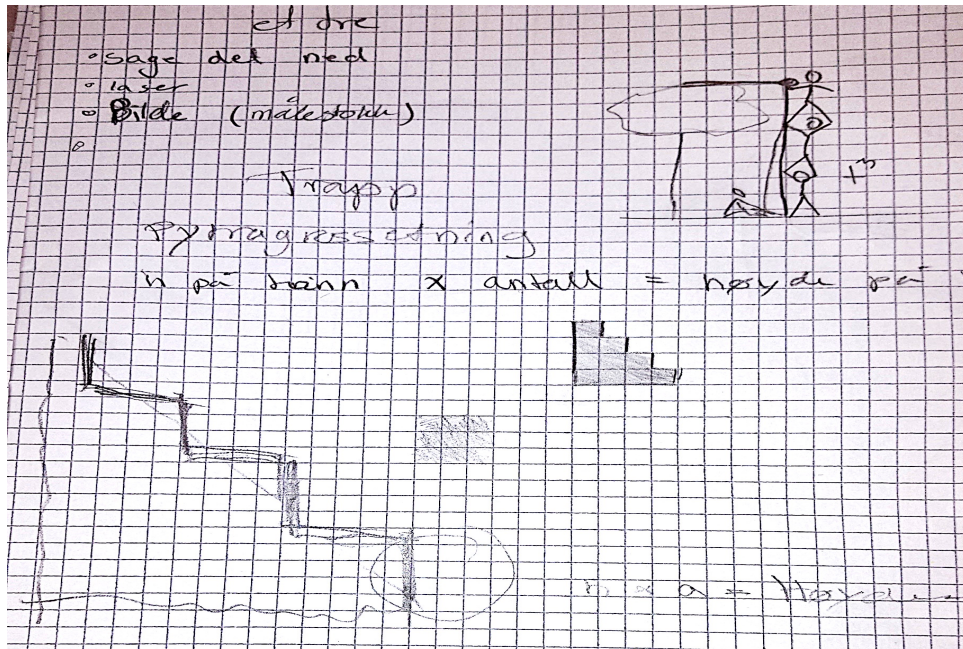 et dre
sage det ned
laser
Bilde (målestokk)
Trapp
Pytmagressetning
h på trinn x antall = høyde på
h x a = Høyde